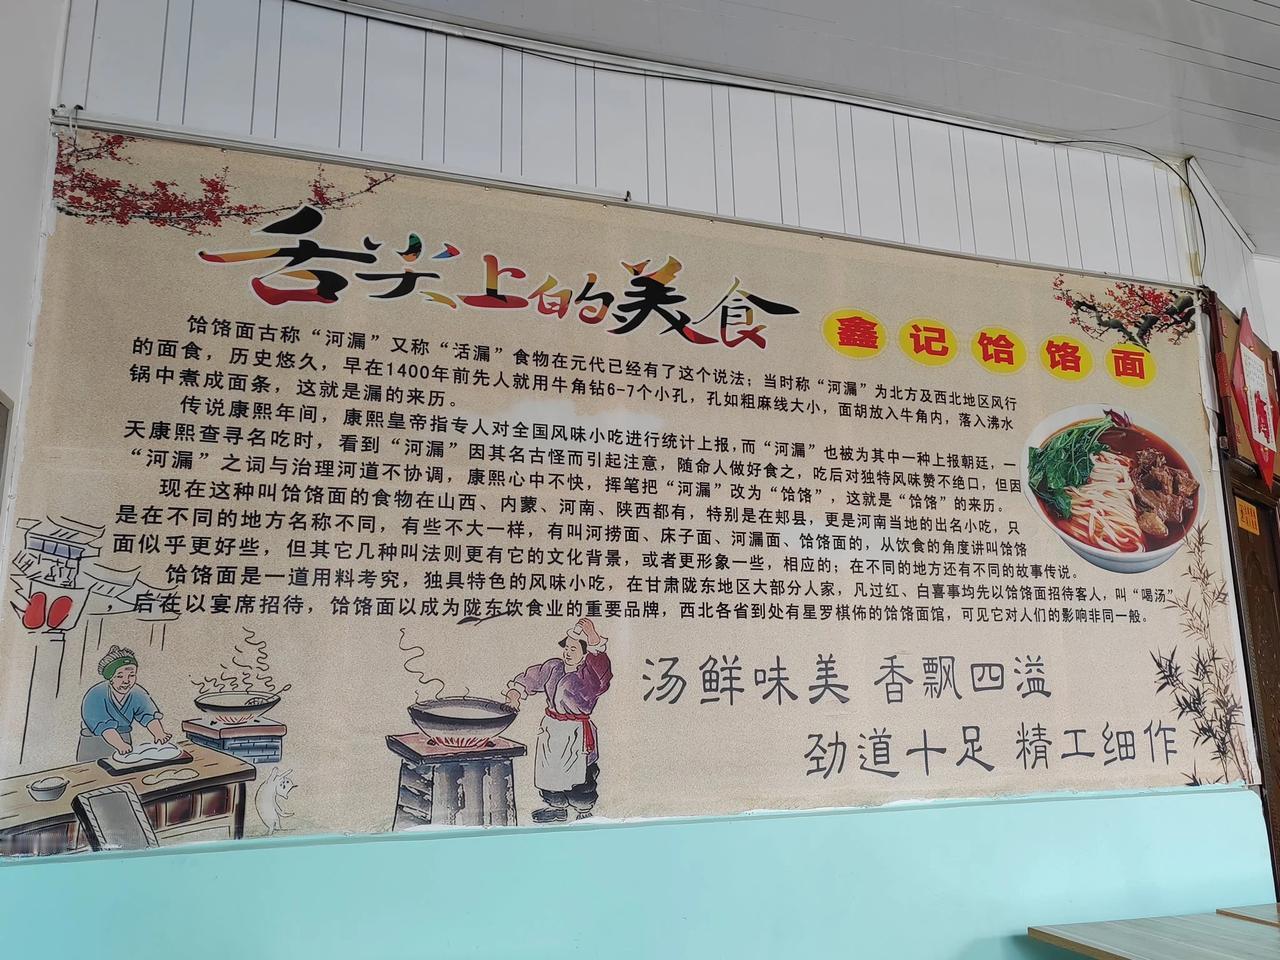 舌尖上的美食
鑫记饸饹面
饸饹面古称“河漏”又称“活漏”食物在元代已经有了这个说法；当时称“河漏”为北方及西北地区风行
的面食，历史悠久，早在1400年前先人就用牛角钻6-7个小孔，孔如粗麻线大小，面胡放入牛角内，落入沸水
锅中煮成面条，这就是漏的来历。
传说康熙年间，康熙皇帝指专人对全国风味小吃进行统计上报，而“河漏”也被为其中一种上报朝廷，一
天康熙查寻名吃时，看到“河漏”因其名古怪而引起注意，随命人做好食之，吃后对独特风味赞不绝口，但因
“河漏”之词与治理河道不协调，康熙心中不快，挥笔把“河漏”改为“饸饹”，这就是“饸饹”的来历。
现在这种叫饸饹面的食物在山西、内蒙、河南、陕西都有，特别是在郏县，更是河南当地的出名小吃，只
是在不同的地方名称不同，有些不大一样，有叫河捞面、床子面、河漏面、饸饹面的，从饮食的角度讲叫饸饹
面似乎更好些，但其它几种叫法则更有它的文化背景，或者更形象一些，相应的；在不同的地方还有不同的故事传说。
饸饹面是一道用料考究，独具特色的风味小吃，在甘肃陇东地区大部分人家，凡过红、白喜事均先以饸饹面招待客人，叫“喝汤”
，后在以宴席招待，饸饹面以成为陇东饮食业的重要品牌，西北各省到处有星罗棋佈的饸饹面馆，可见它对人们的影响非同一般。
汤鲜味美 香飘四溢
劲道十足 精工细作